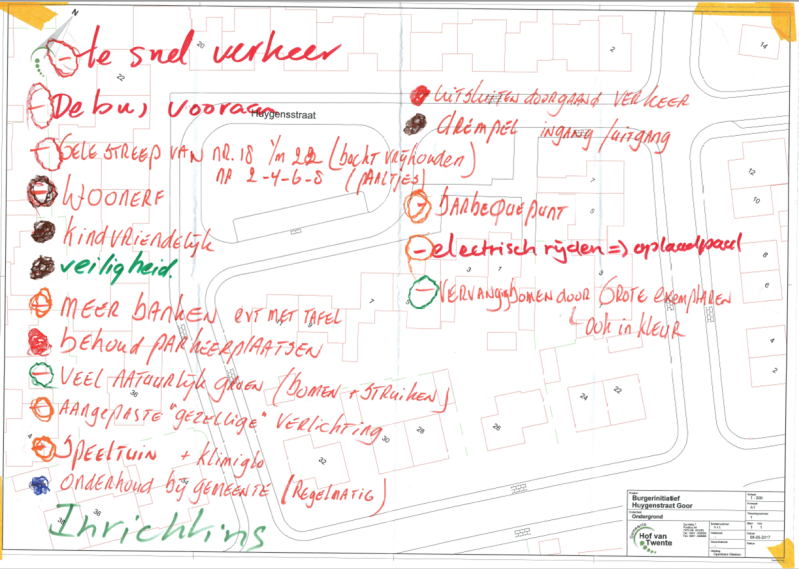 - te snel verkeer
- De bus vooraan
Huygensstraat
- GELE STREEP VAN NR. 18 t/m 22 (bocht vrijhouden)
NR 2-4-6-8 (PAALTJES)
- WOONERF
- kindvriendelijk
- veiligheid.
- MEER BANKEN EVT MET TAFEL
- behoud PARKEERPLAATSEN
- VEEL NATUURLIJK GROEN (BOMEN + STRUIKEN)
- AANGEPASTE "GEZELLIGE" VERLICHTING
- SPEELTUIN + klimiglo
- ONDERHOUD BIJ GEMEENTE (REGELMATIG)
Inrichting
- UITSLUITEN DOORGAAND VERKEER
- DREMPEL INGANG/UITGANG
- barbequepunt
- electrisch rijden => oplaadpaal
- VERVANGEN BOMEN DOOR GROTE EXEMPLAREN
↳ OOK IN KLEUR
20
22
2
14
12
10
8
6
4
2
7
5
3
1
7
5
36
38
32
30
28
26
24
22
Burgerinitiatief
Huygenstraat Goor
Ondergrond
Hof van
Twente
1 : 200
A1